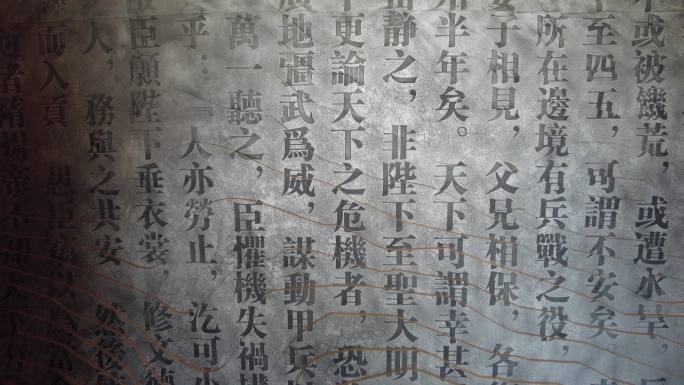 或被饑荒，或遭水旱，
至四五，可謂不安矣。
所在邊境有兵戰之役，
子相見，父兄相保，各
半年矣。天下可謂幸甚
静之，非陛下至聖大明
更論天下之危機者，恐
地彊武爲威，謀動甲兵
萬一聽之，臣懼機失禍構
乎：「人亦勞止，汔可小
臣願陛下垂衣裳，修文德
人，務與之共安。然後
而入貢 愚臣 以爲當
者隋煬帝不知天下有